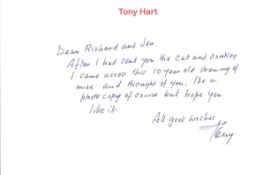 Tony Hart
Dear Richard and Jen.
After I had sent you the cat and donkey
I came across this 10 year old drawing of
mine and thought of you. It's a
photocopy of course but hope you
like it.
All good wishes
Tony